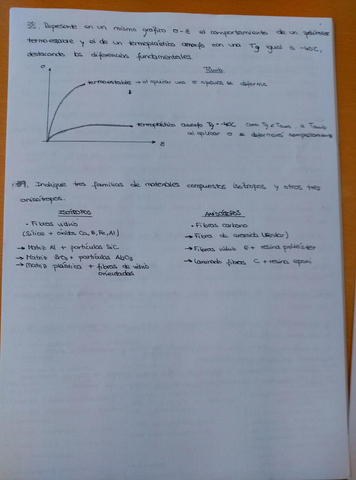 35. Represente en un mismo gráfico σ-ε el comportamiento de un polímero
termoestable y el de un termoplástico amorfo con una Tg igual a -40°C,
destacando las diferencias fundamentales.
σ
Tamb
termoestable → al aplicar una σ apenas se deforma
termoplástico amorfo Tg = -40°C como Tg < Tamb, a Tamb
al aplicar σ se deformará completamente
ε
Indique tres familias de materiales compuestos isótropos y otros tres
anisótropos.
ISÓTROPOS
• Fibras vidrio
(Sílice + óxidos Ca, B, Fe, Al)
→ Matriz Al + partículas SiC
→ Matriz + partículas
→ Matriz plástica + fibras de vidrio
orientadas
ANISÓTROPOS
• Fibras carbono
→ Fibras de aramida (Kevlar)
→ Fibras vidrio E + resina poliéster
→ Laminado fibras C + resina epoxi